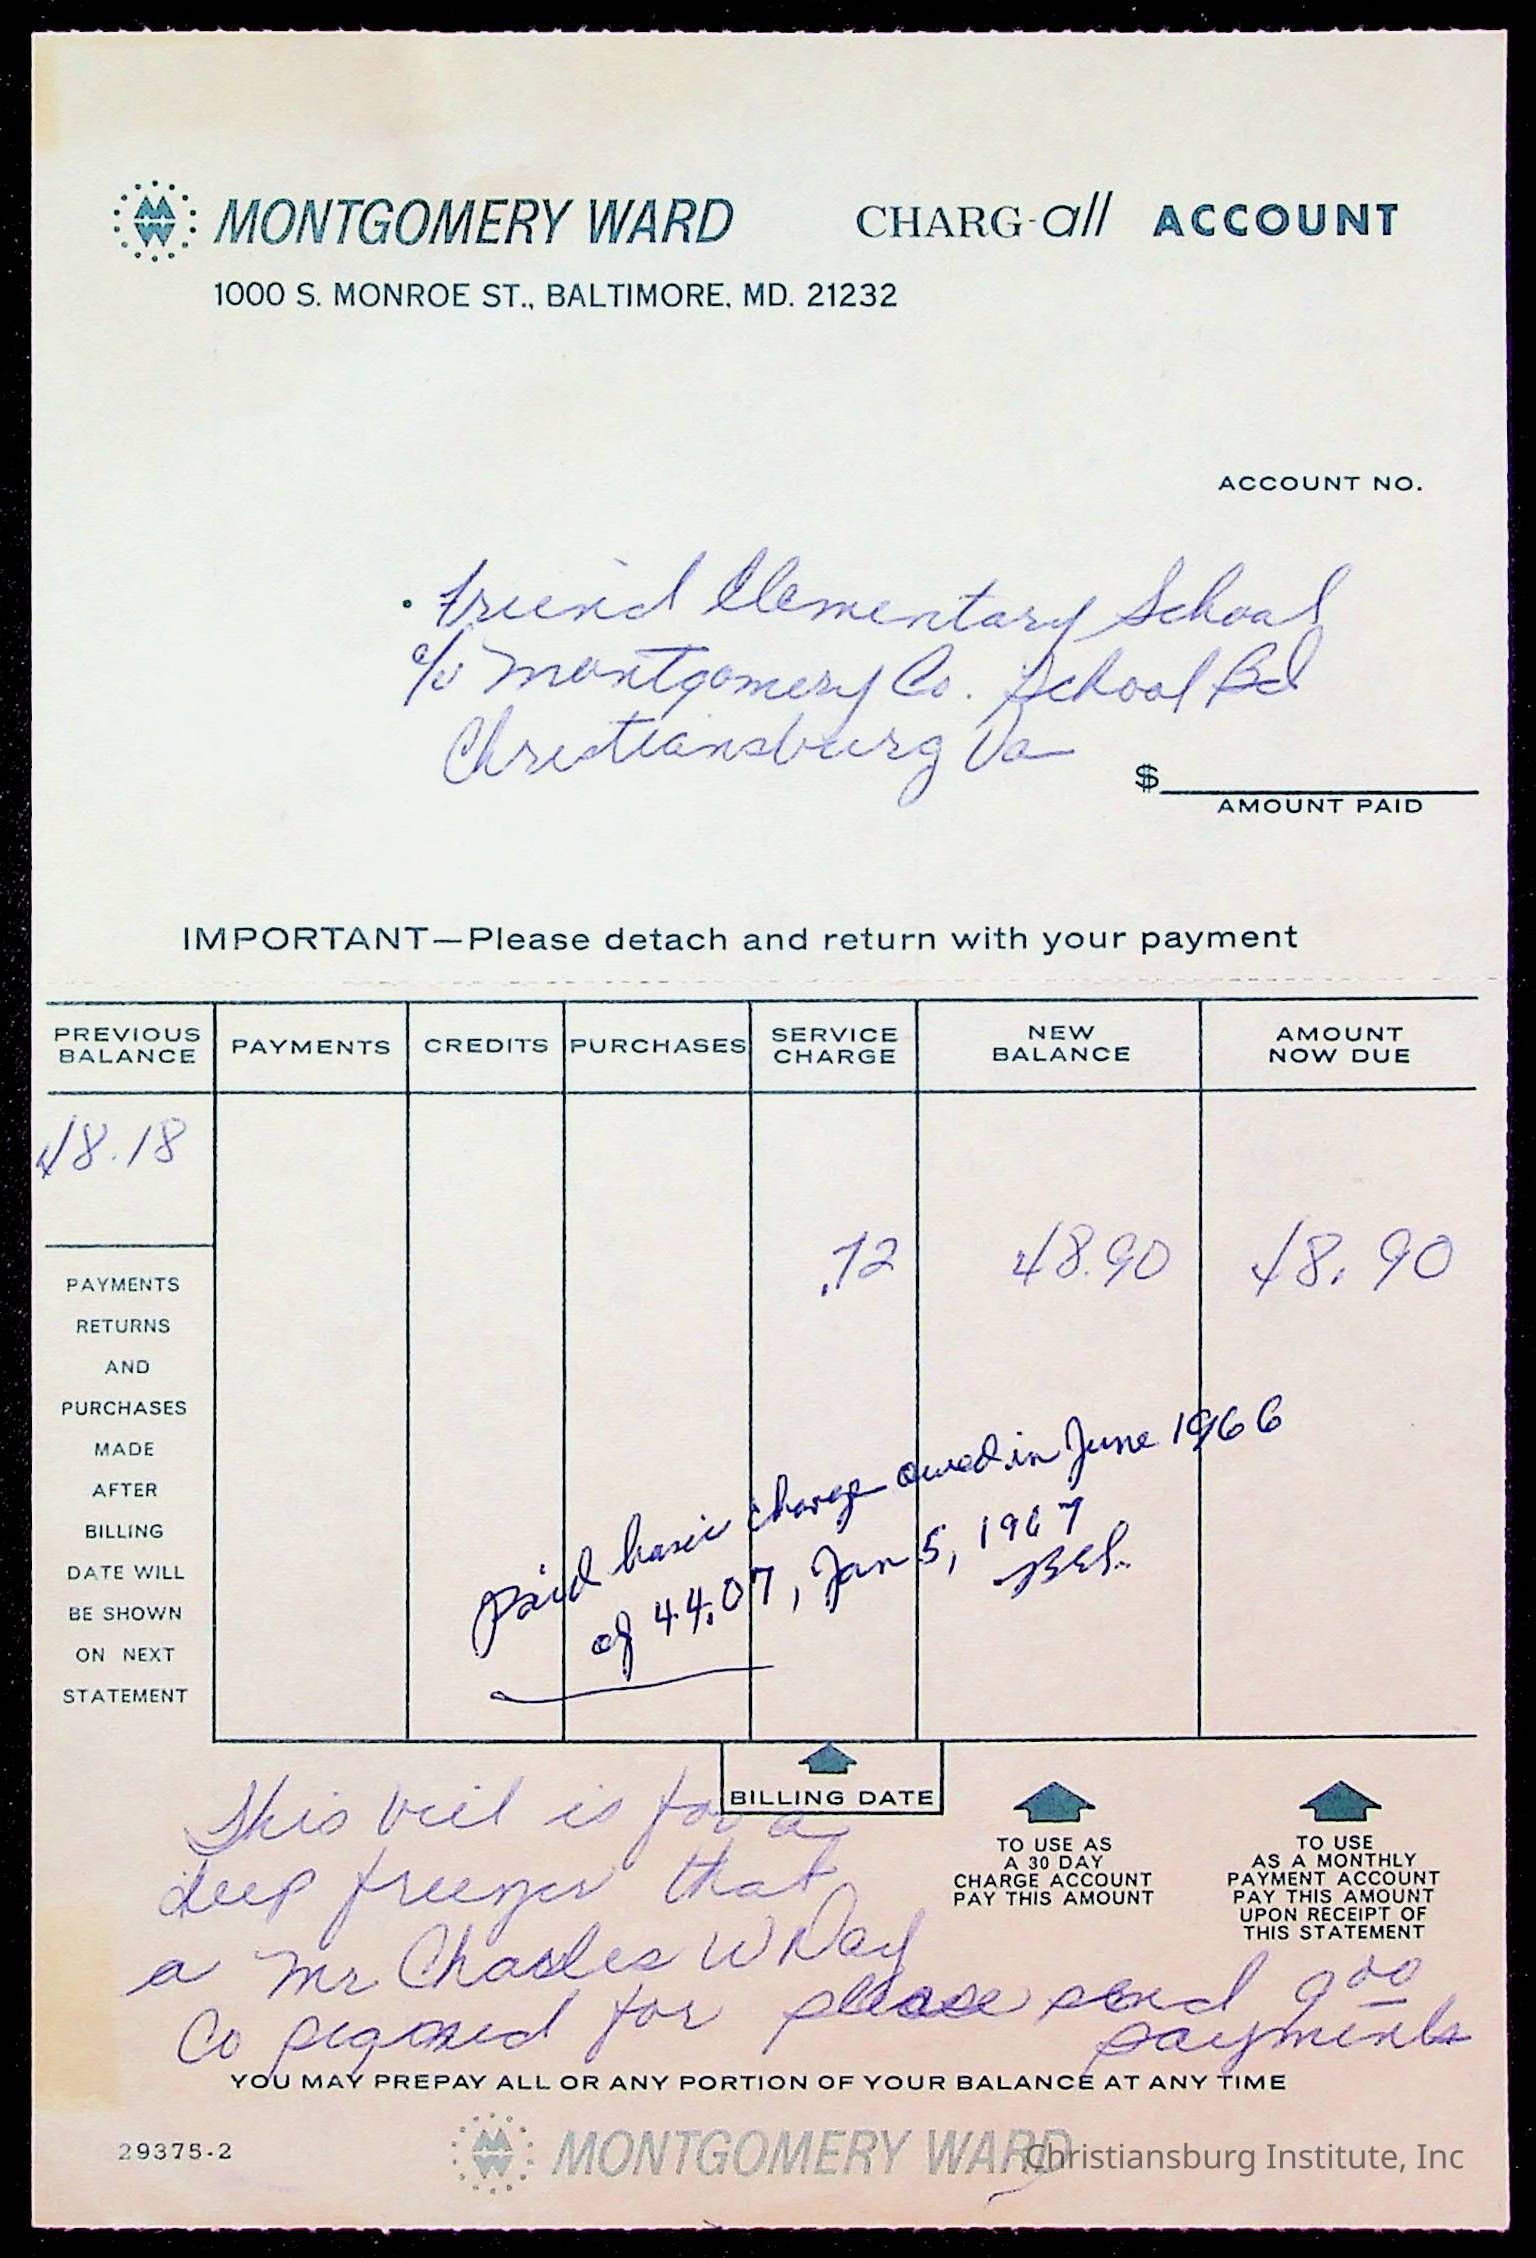 MONTGOMERY WARD CHARG-all ACCOUNT
1000 S. MONROE ST., BALTIMORE, MD. 21232
ACCOUNT NO.
Friend Elementary School
c/o Montgomery Co. School Bd
Christiansburg Va
$
AMOUNT PAID
IMPORTANT—Please detach and return with your payment
PREVIOUS BALANCE PAYMENTS CREDITS PURCHASES SERVICE CHARGE NEW BALANCE AMOUNT NOW DUE
48.18
.72 48.90 48.90
PAYMENTS
RETURNS
AND
PURCHASES
MADE
AFTER
BILLING
DATE WILL
BE SHOWN
ON NEXT
STATEMENT
Paid basic charge owed in June 1966
of 44.07, Jan 5, 1967
BILLING DATE
TO USE AS
A 30 DAY
CHARGE ACCOUNT
PAY THIS AMOUNT
TO USE
AS A MONTHLY
PAYMENT ACCOUNT
PAY THIS AMOUNT
UPON RECEIPT OF
THIS STATEMENT
This bill is for a
deep freezer that
a Mr Charles W Day
Co signed for please send 9.00
payments
YOU MAY PREPAY ALL OR ANY PORTION OF YOUR BALANCE AT ANY TIME
29375-2
MONTGOMERY WARD
Christiansburg Institute, Inc